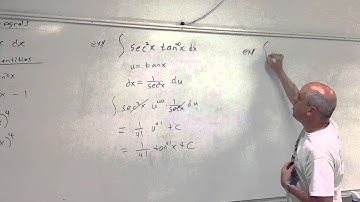 egrals
x dx
entities
n²x
x - 1
x)⁴
)⁴
ex) ∫ sec²x tan⁴⁰x dx
u = tanx
dx = 1/sec²x du
∫ sec²x u⁴⁰ 1/sec²x du
= 1/41 u⁴¹ + C
= 1/41 tan⁴¹x + C
ex) ∫